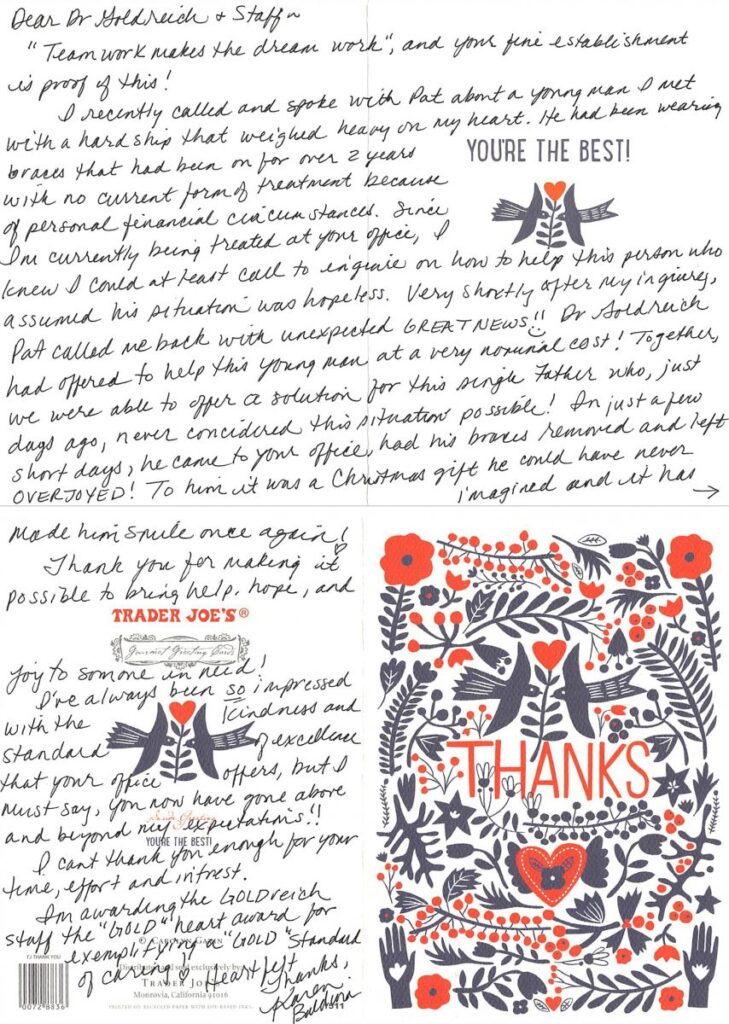 Dear Dr Goldreich + Staff ~
"Teamwork makes the dream work", and your fine establishment
is proof of this!
I recently called and spoke with Pat about a young man I met
with a hardship that weighed heavy on my heart. He had been wearing
braces that had been on for over 2 years
with no current form of treatment because
of personal financial circumstances. Since
I'm currently being treated at your office, I
knew I could at least call to inquire on how to help this person who
assumed his situation was hopeless. Very shortly after my inquirey,
Pat called me back with unexpected GREAT NEWS!! Dr Goldreich
had offered to help this young man at a very nominal cost! Together,
we were able to offer a solution for this single Father who, just
days ago, never concidered this situation possible! In just a few
short days, he came to your office, had his braces removed and left
OVERJOYED! To him it was a Christmas gift he could have never
imagined and it has →
YOU'RE THE BEST!
Made him smile once again!
Thank you for making it
possible to bring help, hope, and
TRADER JOE'S®
Gourmet Greeting Cards
joy to somone in need!
I've always been so impressed
with the kindness and
standard of excellence
that your office offers, but I
must say, you now have gone above
and beyond my expectation's!!
YOU'RE THE BEST!
I cant thank you enough for your
time, effort and intrest.
I'm awarding the GOLDreich
staff the "GOLD" heart award for
exemplifying the "GOLD" Standard
of caring Heart felt
Thanks,
Karen
TJ THANK YOU
TRADER JOE'S
Monrovia, California 91016
PRINTED ON RECYCLED PAPER WITH SOY-BASED INKS.
THANKS